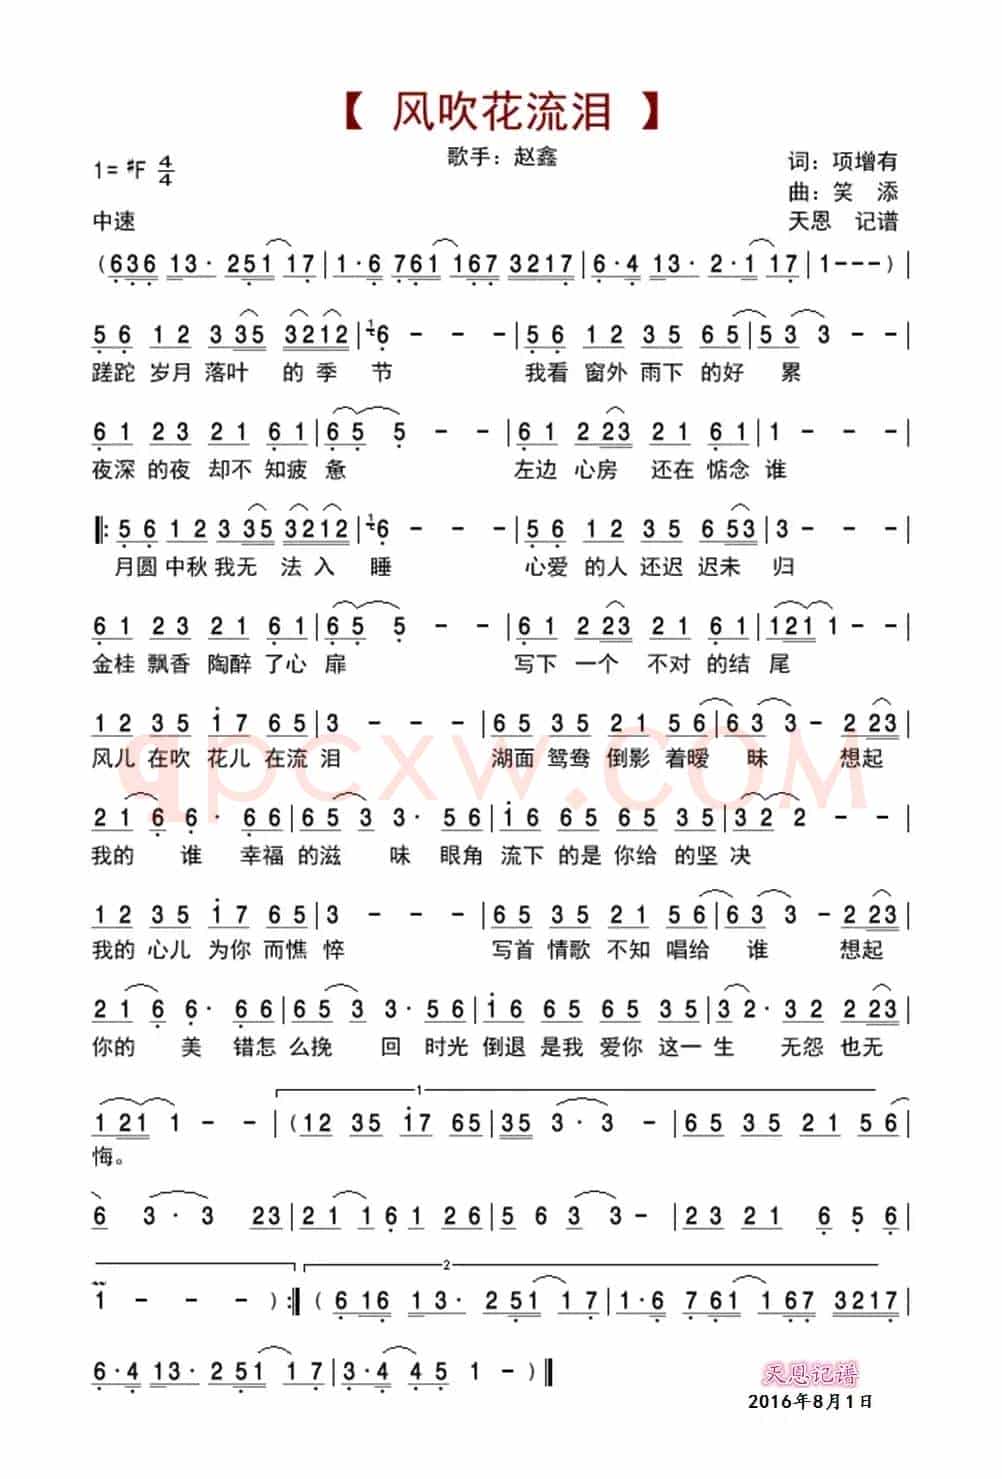 【 风吹花流泪 】
歌手：赵鑫
1= ♯F 4/4
词：项增有
曲：笑 添
中速
天恩 记谱
(636 13· 251 17|1·6 761 167 3217|6·4 13· 2·1 17|1---)|
56 12 335 3212|6 - - 56|12 35 32 65|53 3 -|
蹉跎 岁月 落叶 的 季 节 我看 窗外 雨下 的好 累
61 23 21 61|65 5 - -|61 223 21 61|1 - -|
夜深 的夜 却不 知疲 惫 左边 心房 还在 惦念 谁
‖:56 12 335 3212|6 - - 56|12 35 32 653|3 -|
月圆 中秋 我无 法 入 睡 心爱 的人 还迟 迟未 归
61 23 21 61|65 5 - -|61 223 21 61|121 1 -|
金桂 飘香 陶醉 了心 扉 写下 一个 不对 的结 尾
12 35 17 65|3 - - -|65 35 21 56|63 3 - 223|
风儿 在吹 花儿 在流 泪 湖面 鸳鸯 倒影 着暧 昧 想起
21 6 6· 66|65 3 3· 56|16 65 65 35|32 2 - -|
我的 谁 幸福 的滋 味 眼角 流下 的是 你给 的坚 决
12 35 17 65|3 - - -|65 35 21 56|63 3 - 223|
我的 心儿 为你 而憔 悴 写首 情歌 不知 唱给 谁 想起
21 6 6· 66|65 3 3· 56|16 65 65 35|32· 32 223|
你的 美 错怎 么挽 回 时光 倒退 是我 爱你 这一 生 无怨 也无
1
121 1 - -|(12 35 17 65|35 3·3 -|65 35 21 56|
悔。
6 3·3 23|21 161 26|563 3-|23 21 656|
2
1 - - - ):‖(616 13· 251 17|1·6 761 167 3217|
6·4 13· 251 17|3·4 45 1 -)‖
qpcxw.COM
天恩记谱
2016年8月1日